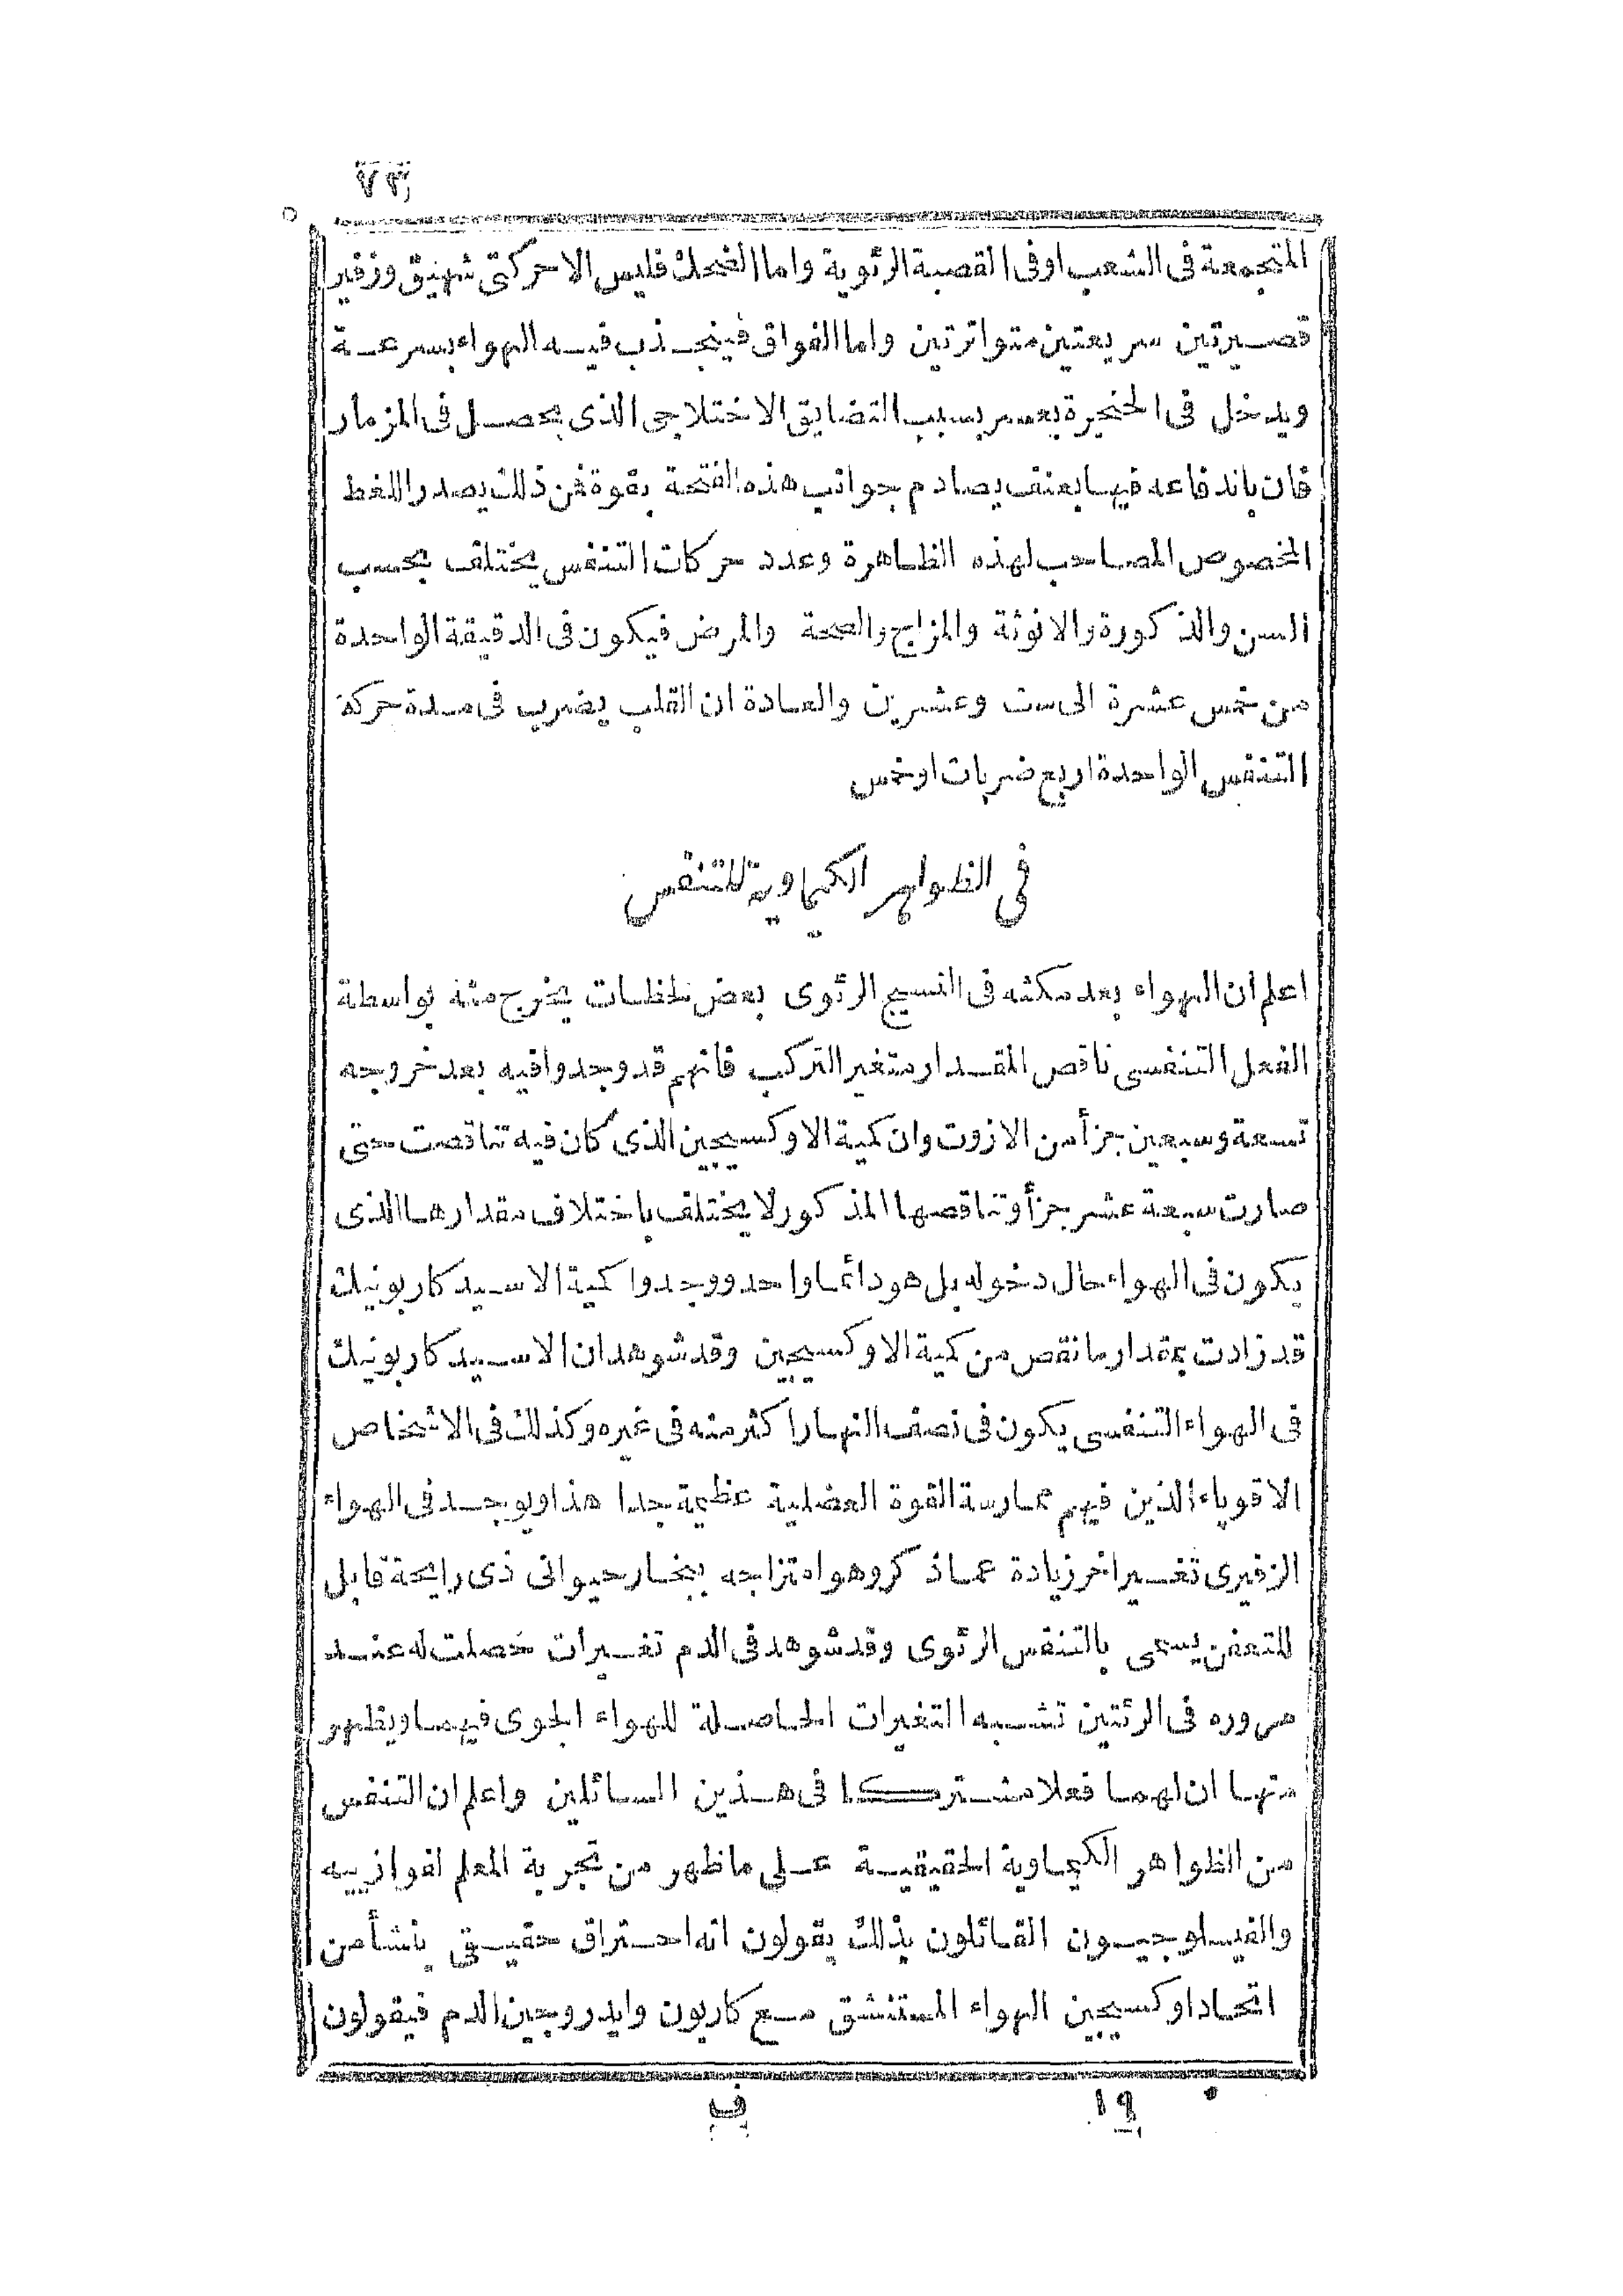 ٧٣
المتجمعة فى الشعب اوفى القصبة الرئوية واما الضحك فليس الا حركتى شهيق وزفير
قصيرتين سريعتين متواترتين واما الفواق فينجذب فيه الهواء بسرعة
ويدخل فى الحنجيرة بعسر بسبب التضايق الاختلاجى الذى يحصل فى المزمار
فان باندفاعه فيها بعنف يصادم جوانب هذه الفتحة بقوة فمن ذلك يصدر اللغط
المخصوص المصاحب لهذه الظاهرة وعدد حركات التنفس يختلف بحسب
السن والذكورة والانوثة والمزاج والصحة والمرض فيكون فى الدقيقة الواحدة
من خمس عشرة الى ست وعشرين والعادة ان القلب يضرب فى مدة حركة
التنفس الواحدة اربع ضربات او خمس
فى الظواهر الكيماوية للتنفس
اعلم ان الهواء بعد مكثه فى النسيج الرئوى بعض لحظات يخرج منه بواسطة
الفعل التنفسى ناقص المقدار متغير التركب فانهم قد وجدوا فيه بعد خروجه
تسعة وسبعين جزأ من الازوت وان كمية الاوكسيجين الذى كان فيه تناقصت حتى
صارت سبعة عشر جزأ وتناقصها المذكور لا يختلف باختلاف مقدارها الذى
يكون فى الهواء حال دخوله بل هو دائما واحد ووجدوا كمية الاسيد كاربونيك
قد زادت بمقدار ما نقص من كمية الاوكسيجين وقد شوهد ان الاسيد كاربونيك
فى الهواء التنفسى يكون فى نصف النهار اكثر منه فى غيره وكذلك فى الاشخاص
الاقوياء الذين فيهم ممارسة القوة العضلية عظيمة جدا هذا ويوجد فى الهواء
الزفيرى تغيير اخر زيادة عما ذكر وهو امتزاجه ببخار حيوانى ذى رايحة قابل
للتعفن يسمى بالتنفس الرئوى وقد شوهد فى الدم تغييرات حصلت له عند
مروره فى الرئتين تشبه التغيرات الحاصلة للهواء الجوى فيهما ويظهر
منها ان لهما فعلا مشتركا فى هذين السائلين واعلم ان التنفس
من الظواهر الكيماوية الحقيقية على ما ظهر من تجربة المعلم لفوازييه
والفيسلوجيون القائلون بذلك يقولون انه احتراق حقيقى ينشأ من
اتحاد اوكسيجين الهواء المستنشق مع كاربون وايدروجين الدم فيقولون
١٩ ف